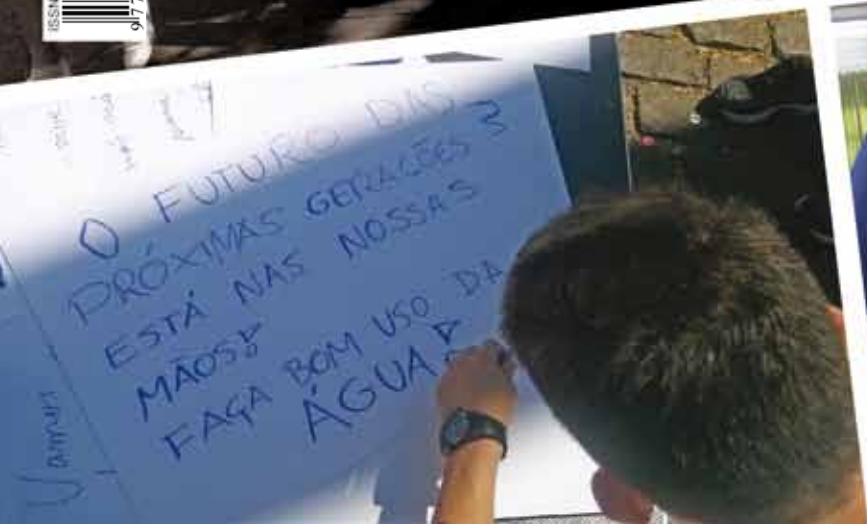 ISSN
9 77
O FUTURO DAS
PRÓXIMAS GERAÇÕES
ESTÁ NAS NOSSAS
MÃOS!
FAÇA BOM USO DA
ÁGUA!